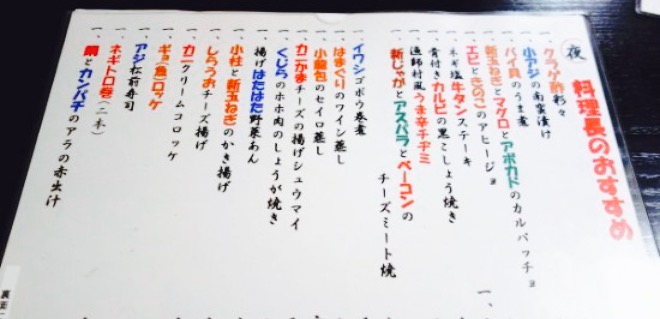 夜 料理長のおすすめ
一、クラゲ酢彩々
一、小アジの南蛮漬け
一、バイ貝のうま煮
一、新玉ねぎとマグロとアボカドのカルパッチョ
一、エビときのこのアヒージョ
一、ネギ塩牛タンステーキ
一、骨付きカルビの黒こしょう焼き
一、漁師村風うま辛チヂミ
一、新じゃがとアスパラとベーコンの
チーズミート焼
一、イワシゴボウ巻煮
一、はまぐりのワイン蒸し
一、小籠包のセイロ蒸し
一、カニかまチーズの揚げシュウマイ
一、くじらのホホ肉のしょうが焼き
一、揚げはたはた野菜あん
一、小柱と新玉ねぎのかき揚げ
一、しらうおチーズ揚げ
一、カニクリームコロッケ
一、ギョ(魚)ロッケ
一、アジ松前寿司
一、ネギトロ巻(二本)
一、鯛とカンパチのアラの赤出汁
一、